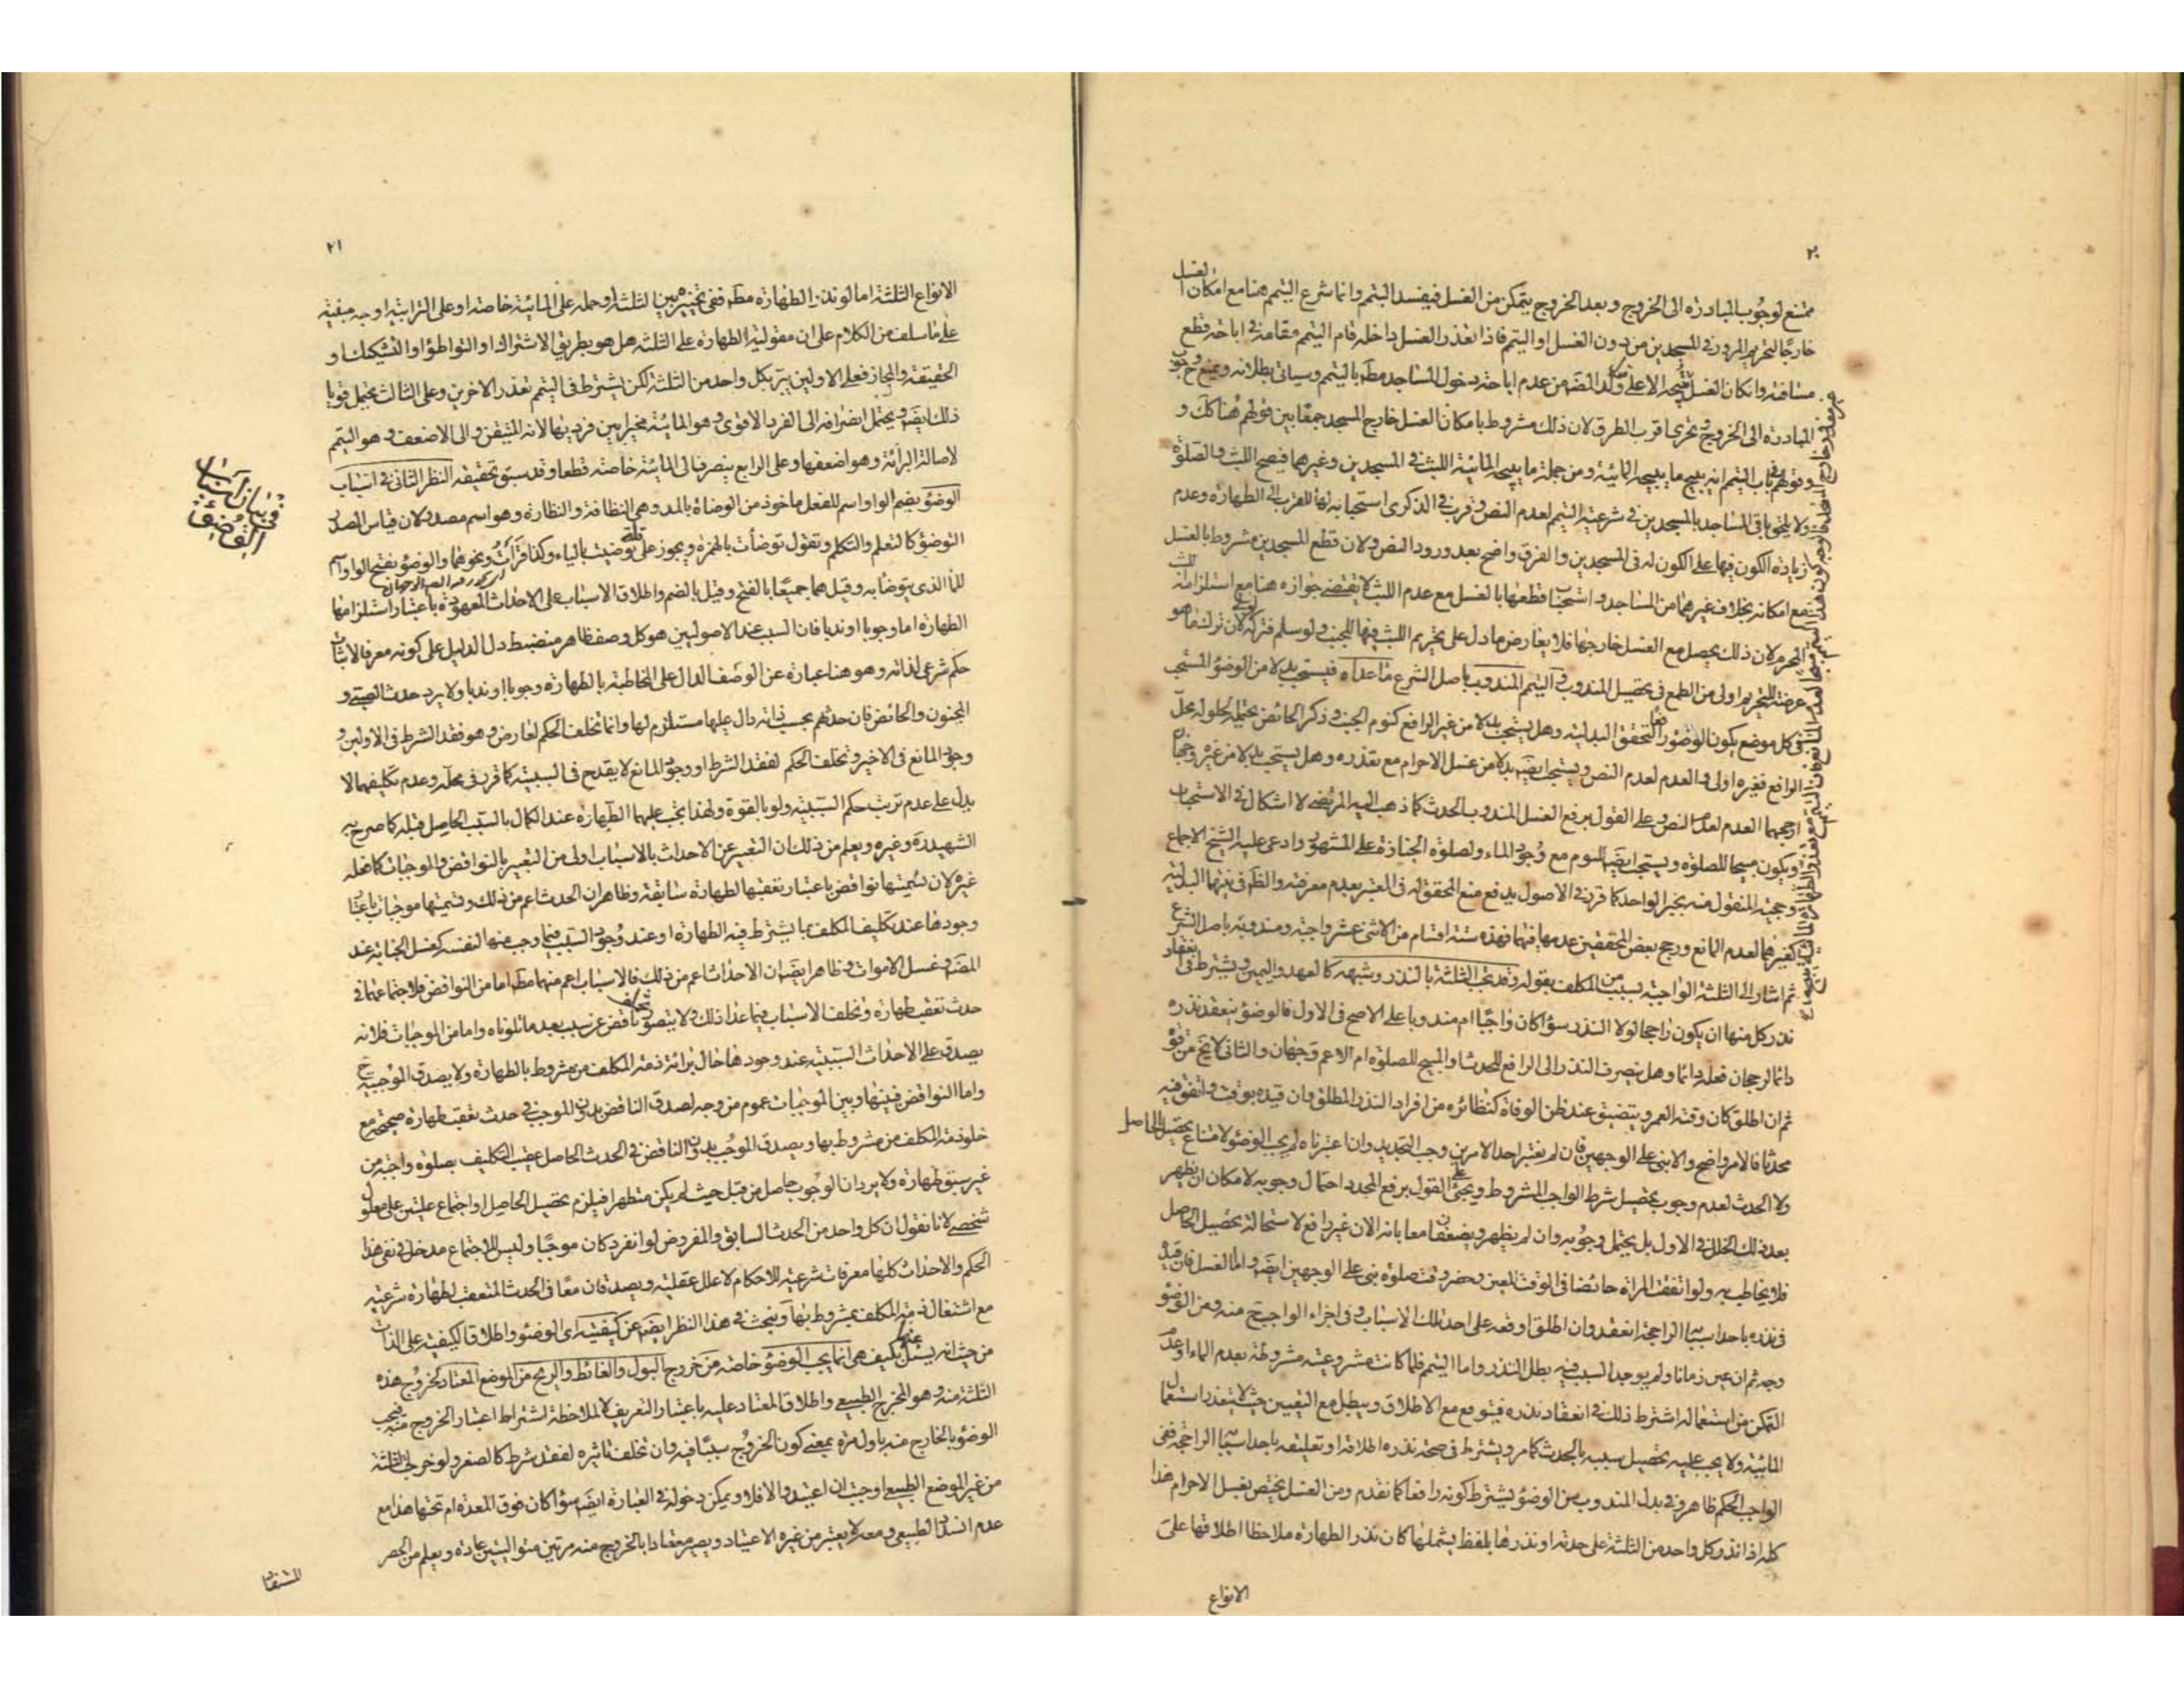 ٢٠
ممتنع لوجوب المبادرة الى الخروج وبعد الخروج يتمكن من الغسل فيفسد التيمم وانما شرع التيمم هنا مع امكان الغسل
خارجا لتحريم المرور في المسجدين من دون الغسل او التيمم فاذا تعذر الغسل داخله قام التيمم مقامه في اباحة قطع
مسافته وان كان الغسل يبيحه الاعلى من عدم اباحة دخول المساجد مط بالتيمم وسياتي بطلانه ويمنع ح وجوب
المبادرة الى الخروج وتحري اقرب الطرق لان ذلك مشروط بامكان الغسل خارج المسجد جمعا بين قولهم هنا كك و
وقولهم في باب التيمم انه يبيح ما يبيحه المائية ومن جملة ما يبيحه المائية اللبث في المسجدين وغيرهما فيصح اللبث والصلوة
ولا يلحق باقي المساجد بالمسجدين في شرعية التيمم لعدم النص وقرب في الذكرى استحبابه لها للقرب الى الطهارة وعدم
زيادة الكون فيها على الكون له في المسجدين والفرق واضح بعد ورود النص ولان قطع المسجدين مشروط بالغسل
مع امكانه بخلاف غيرهما من المساجد واستحباب قطعها بالغسل مع عدم اللبث لا يقتضي جوازه هنا مع استلزامه للبث
المحرم لان ذلك يحصل مع الغسل خارجها فلا يعارض ما دل على تحريم اللبث فيها للجنب ولو سلم فتركه اولى لان ترك ما هو
عرضة للتحريم اولى من الطمع في تحصيل المندوب والتيمم المندوب باصل الشرع ما عداه فيستحب بدلا من الوضوء المستحب
في كل موضع يكون الوضوء رافعا لتحقق البدلية وهل يستحب بدلا من غير الرافع كنوم الجنب وذكر الحائض يحتمله لحلوله محل
الرافع فغيره اولى والعدم لعدم النص ويستحب ايضا بدلا من غسل الاحرام مع تعذره وهل يستحب بدلا من غيره وجهان
ارجحهما العدم لعدم النص وعلى القول برفع الغسل المندوب الحدث كما ذهب اليه المرتضى لا اشكال في الاستحباب
ويكون مبيحا للصلوة ويستحب ايضا للنوم مع وجود الماء ولصلوة الجنازة على المشهور وادعى عليه الشيخ الاجماع
وحجية المنقول منه بخبر الواحد كما قرر في الاصول يدفع منع المحقق له في المعتبر بعدم معرفته والظ في نيتها البدلية
كغيرهما لعدم المانع ورجح بعض المحققين عدمها فيهما فهذه ستة اقسام من الاثنى عشر واجبة ومندوبة باصل الشرع
ثم اشار الى الثلثة الواجبة بسبب من المكلف بقوله وقد تجب الثلثة بالنذر وشبهه كالعهد واليمين ويشترط في انعقاد
نذر كل منها ان يكون راجحا لولا النذر سواء كان واجبا ام مندوبا على الاصح في الاول فالوضوء ينعقد نذره
دائما لرجحان فعله دائما وهل ينصرف النذر الى الرافع للحدث او المبيح للصلوة ام الاعم وجهان والثاني لا يخ من قوة
ثم ان اطلق كان وقته العمر ويتضيق عند ظن الوفاة كنظائره من افراد النذر المطلق وان قيده بوقت واتفق فيه
محدثا فالامر واضح والا بنى على الوجهين فان لم نعتبر احد الامرين وجب التجديد وان اعتبرناه لم يجب الوضوء لامتناع تحصيل الحاصل
ولا الحدث لعدم وجوب تحصيل شرط الواجب المشروط ويجئ على القول برفع المجدد احتمال وجوبه لامكان ان يظهر
بعد ذلك الخلل في الاول بل يحتمل وجوبه وان لم يظهر ويضعفان معا بانه الان غير رافع لاستحالة تحصيل الحاصل
فلا يخاطب به ولو اتفقت المراة حائضا في الوقت المعين وحضر وقت صلوة بنى على الوجهين ايضا واما الغسل فان قيد
في نذره باحد اسبابه الراجحة انعقد وان اطلق اوقعه على احد تلك الاسباب وفي اجزاء الواجب ح منه ومن الوضوء
وجه ثم ان عين زمانا ولم يوجد السبب فيه بطل النذر واما التيمم فلما كانت مشروعيته مشروطة بعدم الماء او عدم
التمكن من استعماله اشترط ذلك في انعقاد نذره فيتوقع مع الاطلاق ويبطل مع التعيين حيث لا يتعذر استعمال
المائية ولا يجب عليه تحصيل سببه بالحدث كما مر ويشترط في صحة نذره اطلاقه او تعليقه باحد اسبابه الراجحة ففي
الواجب الحكم ظاهر وفي بدل المندوب من الوضوء يشترط كونه رافعا كما تقدم ومن الغسل يختص بغسل الاحرام هذا
كله اذا نذر كل واحد من الثلثة على حدته او نذرها بلفظ يشملها كان نذر الطهارة ملاحظا اطلاقها على
الانواع
٢١
الانواع الثلثة اما لو نذر الطهارة مط ففي تخييره بين الثلثة او حمله على المائية خاصة او على الترابية اوجه مبنية
على ما سلف من الكلام على ان مقولية الطهارة على الثلثة هل هو بطريق الاشتراك او التواطؤ او التشكيك او
الحقيقة والمجاز فعلى الاولين يبر بكل واحد من الثلثة لكن يشترط في التيمم تعذر الاخرين وعلى الثالث يحتمل قويا
ذلك ايضا ويحتمل انصرافه الى الفرد الاقوى وهو المائية مخيرا بين فرديها لانه المتيقن والى الاضعف وهو التيمم
لاصالة البرائة وهو اضعفها وعلى الرابع ينصرف الى المائية خاصة قطعا وقد سبق تحقيقه النظر الثاني في اسباب
الوضوء بضم الواو اسم للفعل ماخوذ من الوضاءة بالمد وهي النظافة والنضارة وهو اسم مصدر لان قياس المصدر
التوضؤ كالتعلم والتكلم وتقول توضأت بالهمزة ويجوز على قلة توضيت بالياء وكذا قرات ونحوهما والوضوء بفتح الواو اسم
للماء الذي يتوضا به وقيل هما جميعا بالفتح وقيل بالضم واطلاق الاسباب على الاحداث المعهودة باعتبار استلزامها
الطهارة اما وجوبا او ندبا فان السبب عند الاصوليين هو كل وصف ظاهر منضبط دل الدليل على كونه معرفا لاثبات
حكم شرعي لذاته وهو هنا عبارة عن الوصف الدال على المخاطبة بالطهارة وجوبا او ندبا ولا يرد حدث الصبي و
المجنون والحائض فان حدثهم بحسب ذاته دال عليها مستلزم لها وانما تخلف الحكم لعارض وهو فقد الشرط في الاولين و
وجود المانع في الاخير وتخلف الحكم لفقد الشرط او وجود المانع لا يقدح في السببية كما قرر في محله وعدم تكليفهما لا
يدل على عدم ترتب حكم السببية ولو بالقوة ولهذا يجب عليهما الطهارة عند الكمال بالسبب الحاصل قبله كما صرح به
الشهيد ره وغيره ويعلم من ذلك ان التعبير عن الاحداث بالاسباب اولى من التعبير بالنواقض والموجبات كما فعله
غيره لان تسميتها نواقض باعتبار تعقبها لطهارة سابقة وظاهر ان الحدث اعم من ذلك وتسميتها موجبات باعتبار
وجودها عند تكليف المكلف بما يشترط فيه الطهارة او عند وجود السبب فيما وجب منها لنفسه كغسل الجنابة عند
المض وغسل الاموات وظاهر ايضا ان الاحداث اعم من ذلك فالاسباب اعم منهما مط اما من النواقض فلاجتماعهما في
حدث تعقب طهارة وتخلف الاسباب فيما عدا ذلك ولا يتصور تخلف ناقض عن سبب بعد ما تلوناه واما من الموجبات فلانه
يصدق على الاحداث السببية عند وجودها حال برائة ذمة المكلف من مشروط بالطهارة ولا يصدق الموجبية ح
واما النواقض فبينها وبين الموجبات عموم من وجه لصدق الناقض بدون الموجب في حدث تعقب طهارة صحيحة مع
خلو ذمة المكلف من مشروط بها ويصدق الموجب بدون الناقض في الحدث الحاصل عقيب التكليف بصلوة واجبة من
غير سبق طهارة ولا يرد ان الوجوب حاصل من قبل حيث لم يكن متطهرا فيلزم تحصيل الحاصل او اجتماع علتين على معلول
شخصي لانا نقول ان كل واحد من الحدث السابق والمفروض لو انفرد كان موجبا وليس للاجتماع مدخل في نفي هذا
الحكم والاحداث كلها معرفات شرعية للاحكام لا علل عقلية ويصدقان معا في الحدث المتعقب لطهارة شرعية
مع اشتغال ذمة المكلف بمشروط بها ويبحث في هذا النظر ايضا عن كيفيته اى الوضوء واطلاق الكيفية على الذات
من حيث انه يسئل عنها بكيف هي انما يجب الوضوء خاصة من خروج البول والغائط والريح من الموضع المعتاد لخروج هذه
الثلثة منه وهو المخرج الطبيعي واطلاق المعتاد عليه باعتبار التعريف لا لملاحظة اشتراط اعتبار الخروج منه فيجب
الوضوء بالخارج منه باول مرة بمعنى كون الخروج سببا فيه وان تخلف تاثيره لفقد شرط كالصغر ولو خرج الثلثة
من غير الموضع الطبيعي اوجبت ان اعتيد والا فلا ويمكن دخوله في العبارة ايضا سواء كان فوق المعدة ام تحتها هذا مع
عدم انسداد الطبيعي ومعه لا يعتبر من غيره الاعتياد ويصير معتادا بالخروج منه مرتين متواليتين عادة ويعلم من الحصر
المستفاد
في بيان اسباب
الوضوء